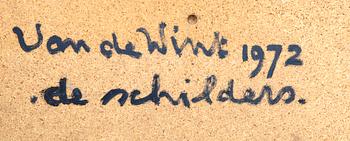 Van de Wint 1972
.de schilders.